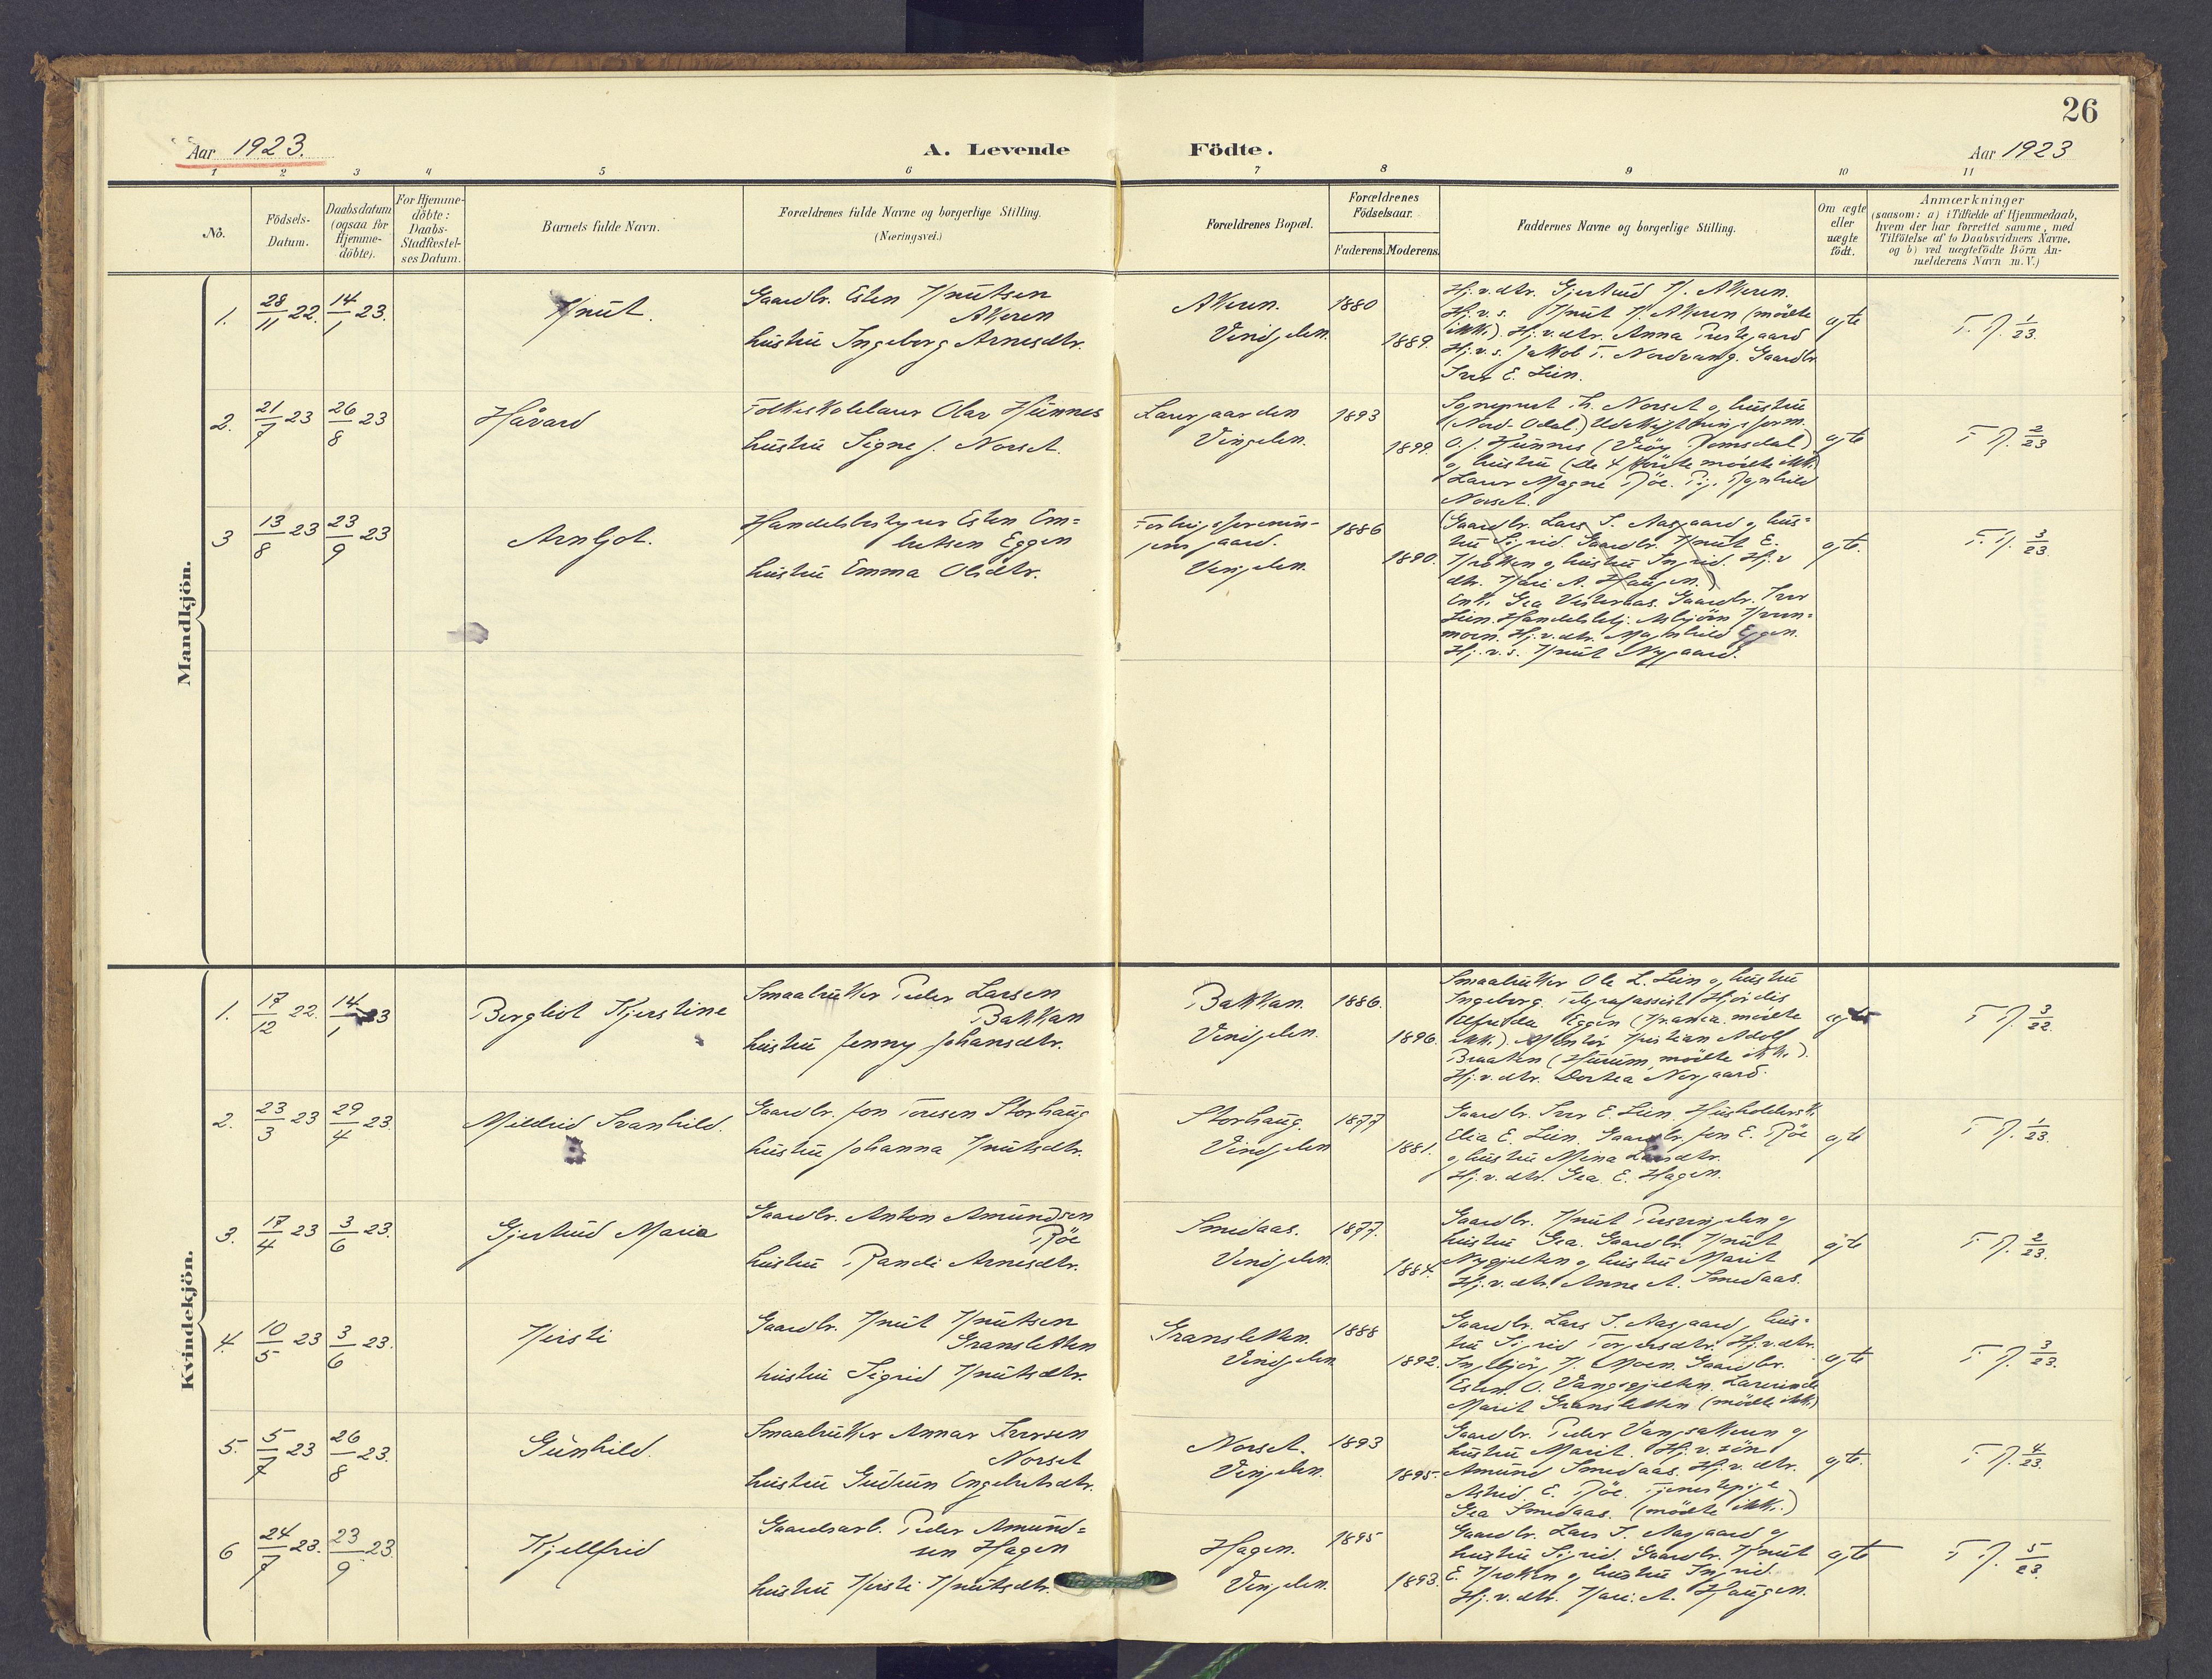 26
Aar 1923.
A. Levende Födte.
Aar 1923
1 2 3 4 5 6 7 8 9 10 11
No.
Födsels-
Datum.
Daabsdatum
(ogsaa for
Hjemme-
döbte).
For Hjemme-
döbte:
Daabs-
Stadfæstel-
ses Datum.
Barnets fulde Navn.
Forældrenes fulde Navne og borgerlige Stilling.
(Næringsvei.)
Forældrenes Bopæl.
Forældrenes
Födselsaar.
Faderens. Moderens.
Faddernes Navne og borgerlige Stilling.
Om ægte
eller
uægte
födt.
Anmærkninger
(saasom: a) i Tilfælde af Hjemmedaab,
hvem der har forrettet samme, med
Tilföielse af to Daabsvidners Navne,
og b) ved uægtefödte Börn An-
melderens Navn m. V.)
Mandkjön.
1. 28/11 22. 14/1 23. Knut.
Gaardbr. Esten Knutsen
Akeren
hustru Ingeborg Arnesdtr.
Akeren.
Vingelen.
1880
1889.
Hj.v.dtr. Gjertrud K. Akeren.
Hj.v.s. Knut K. Akeren (mödte
ikke). Hj.v.dtr. Anna Prestegaard
Hj.v.s. Jakob T. Nordvang. Gaardbr.
Iver E. Lien.
egte
F. R. 1/23.
2. 21/7 23 26/8 23 Håvard
Folkeskolelærer Olav Hunnes
hustru Signe J. Norset.
Lærergaarden
Vingelen.
1893
1899.
Sogneprest Th. Norset og hustru
(Nord-Odal.) Udskiftningsform.
O. J. Hunnes (Vröy Romsdal)
og hustru (De 4 förste mödte ikke)
Lærer Magne Röe. Pige Ragnhild
Norset.
egte
F. R. 2/23
3 13/8 23 23/9 23 Arnljot.
Handelsbestyrer Esten Em-
bretsen Eggen
hustru Emma Olsdtr.
Forbrugsforenin-
gens gaard.
Vingelen.
1886
1890.
(Gaardbr. Lars S. Aasgaard og hus-
tru Sigrid. Gaardbr. Knut E.
Krokken og hustru Ingrid. Hj.v
dtr. Kari A. Haugen.)
Enke Gea Vesteraas. Gaardbr. Iver
Lien. Handelsbetj. Asbjörn Kvern-
moen. Hj.v.dtr. Magnhild Eggen.
Hj.v.s. Knut Nygaard.
egte.
F. R. 3/23.
Kvindekjön.
1. 17/12 22. 14/1 23 Bergliot Kjerstine
Smaabruker Peder Larsen
Bakkan
hustru Jenny Johansdtr.
Bakkan.
Vingelen.
1886.
1896.
Smaabruker Ole L. Lien og hustru
Ingeborg. Telegrafassist. Hjördis
Elfrida Eggen
ikke). Kristian Adolf
Braaten (Hurum, mödte ikke).
Hj.v.dtr. Dortea Norgaard.
egte
F. R. 3/22.
2. 23/3 23 29/4 23. Mildrid Svanhild.
Gaardbr. Jon Toresen Storhaug
hustru Johanna Knutsdtr.
Storhaug.
Vingelen
1877
1881.
Gaardbr. Iver E. Lien. Husholdersk.
Elia E. Lien. Gaardbr. Jon E. Röe
og hustru Mina Larsdtr.
Hj.v.dtr. Gea E. Hagen.
egte
F. R. 1/23.
3. 17/4 23 3/6 23. Gjertrud Maria
Gaardbr. Anton Amundsen
Röe
hustru Randi Arnesdtr.
Smedaas.
Vingelen.
1877.
1884.
Gaardbr. Knut og
hustru Gea. Gaardbr. Knut
Nygjelten og hustru Marit
Hj.v.dtr. Anne A. Smedaas.
egte
F. R. 2/23.
4. 10/5 23 3/6 23. Kirsti
Gaardbr. Knut Knutsen
Gransletten
hustru Sigrid Knutsdtr.
Gransletten.
Vingelen
1888
1892.
Gaardbr. Lars S. Aasgaard, hus-
tru Sigrid Torgersdtr. Hj.v.dtr.
Ingebjörg K. Moen. Gaardbr.
Esten O. Vangsgjelten. Lærerinde
Marit Gransletten (mödte ikke)
egte
F. R. 3/23.
5. 5/7 23 26/8 23. Gunhild.
Smaabruker Annar Iversen
Norset
hustru Gudrun Engebretsdtr.
Norset.
Vingelen.
1893
1895.
Gaardbr. Peder Vangsakeren og
hustru Marit. Hj.v. sön
Amund Smedaas. Hj.v.dtr.
Astrid E. Röe. Tjenestepige
Gea Smedaas. (mödte ikke.)
egte.
F. R. 4/23.
6 24/7 23. 23/9 23. Kjellfrid
Gaardsarb. Peder Amund-
sen Hagen
hustru Kirsti Knutsdtr.
Hagen.
Vingelen.
1895
1893.
Gaardbr. Lars S. Aasgaard og
hustru Sigrid. Gaardbr. Knut
E. Krokken og hustru Ingrid.
Hj.v.dtr. Kari A. Haugen.
egte
F. R. 5/23.